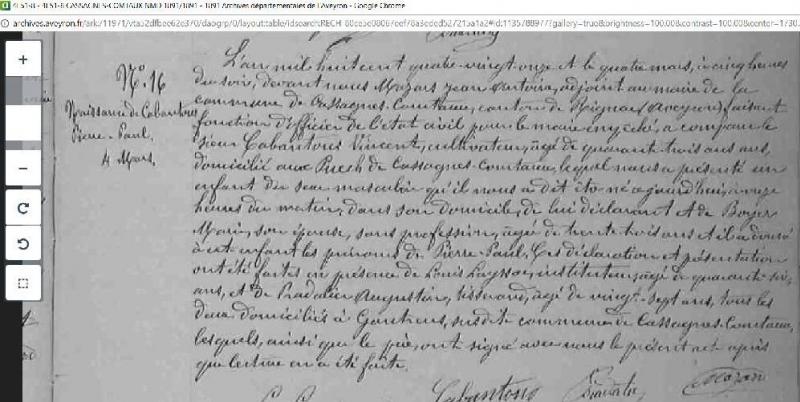 4E51-8 - 4E51-8 CASSAGNES-COMTAUX NMD 1891/1891 - 1891 Archives départementales de l'Aveyron - Google Chrome
archives.aveyron.fr/ark:/11971/
No. 16
Naissance de Cabantous
Pierre-Paul.
4 Mars.
L'an mil huit cent quatre-vingt-onze et le quatre mars, à cinq heures
du soir, devant nous Mazars Jean Antoine, adjoint au maire de la
commune de Cassagnes-Comtaux, canton de Rignac (Aveyron) faisant
fonction d'officier de l'état civil pour le maire empêché, a comparu le
sieur Cabantous Vincent, cultivateur, âgé de quarante-trois ans,
domicilié aux Puech de Cassagnes-Comtaux, lequel nous a présenté un
enfant du sexe masculin qu'il nous a dit être né aujourd'hui, à onze
heures du matin, dans son domicile, de lui déclarant et de Boyer
Marie, son épouse, sans profession, âgée de trente trois ans et il a donné
à cet enfant les prénoms de Pierre-Paul. Ces déclaration et présentation
ont été faites en présence de Louis Laysson, instituteur, âgé de quarante-six
ans, et de Pradalier Augustin, tisserand, âgé de vingt-sept ans, tous les
deux domiciliés à Goutrens, susdite commune de Cassagnes-Comtaux,
lesquels, ainsi que le père, ont signé avec nous le présent acte après
que lecture en a été faite.
Cabantous Mazars